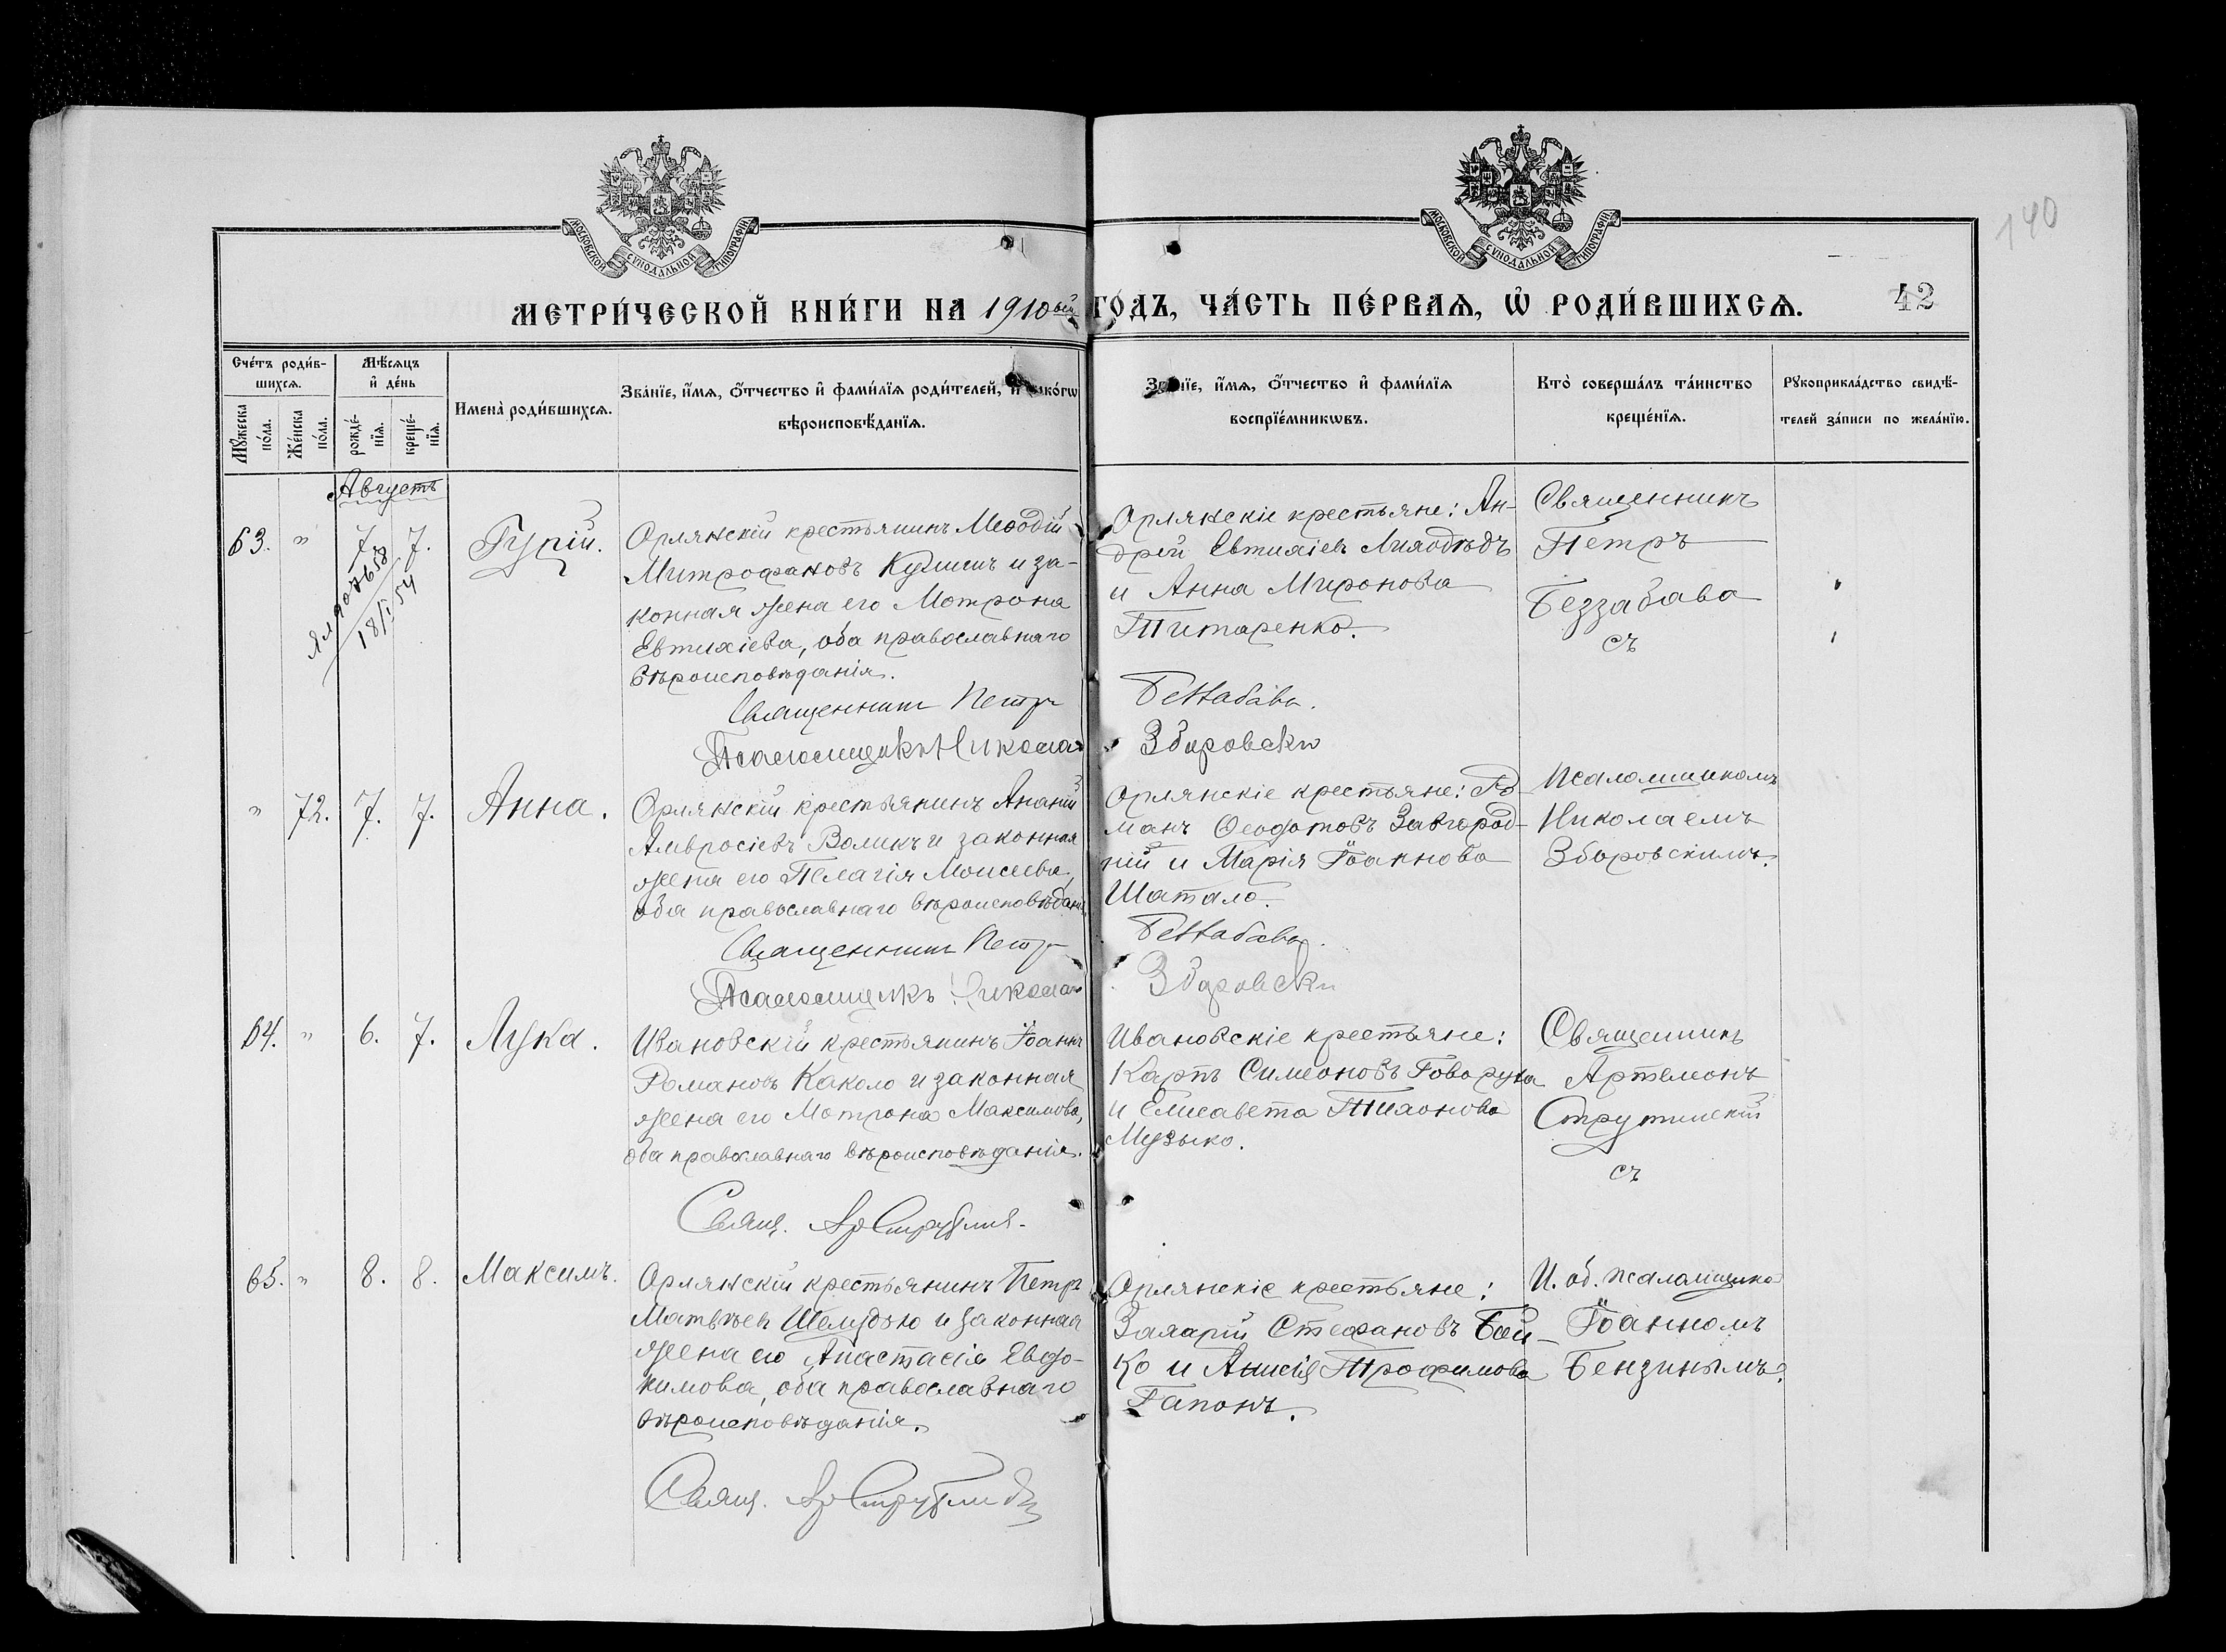 МОСКОВСКОЙ СУНОДАЛЬНОЙ ТИПОГРАФІИ
МОСКОВСКОЙ СУНОДАЛЬНОЙ ТИПОГРАФІИ
140
МЕТРИ́ЧЕСКОЙ КНИ́ГИ НА 1910ый ГО́ДЪ, ЧА́СТЬ ПЕ́РВАЯ, Ѡ҆ РОДИ́ВШИХСЯ.
42
Сче́тъ роди́в-
шихся.
Мѣ́сяцъ
и҆ де́нь
Мꙋ́жеска
по́ла.
Же́нска
по́ла.
рожде́-
нїя.
креще́-
нїя.
Имена̀ роди́вшихся.
Зва́нїе, и҆́мя, ѻ҆́тчество и҆ фами́лїя роди́телей, и҆ како́гѡ
вѣроисповѣ́данїя.
Зва́нїе, и҆́мя, ѻ҆́тчество и҆ фами́лїя
воспрїе́мникѡвъ.
Кто̀ соверша́лъ та́инство
креще́нїя.
Рꙋкоприкла́дство свидѣ́-
телей за́писи по жела́нїю.
Августъ
63. " 7. 7. Гурій.
18/I 54
Орлянскій крестьянинъ Меѳодій
Митрофановъ Кулишъ и за-
конная жена его Мотрона
Евтихіева, оба православнаго
вѣроисповѣданія.
Священникъ Петръ Беззабава.
Псаломщикъ Николай Зборовскій
Орлянскіе крестьяне: Ан-
дрей Евтихіевъ Лиходѣдъ
и Анна Миронова
Титаренко.
Священникъ
Петръ
Беззабава
съ
" 72. 7. 7. Анна.
Орлянскій крестьянинъ Ананій
Амвросіевъ Воликъ и законная
жена его Пелагія Моисеева,
оба православнаго вѣроисповѣдан.
Священникъ Петръ Беззабава.
Псаломщикъ Николай Зборовскій
Орлянскіе крестьяне: Ро-
манъ Ѳеодотовъ Завгород-
ній и Марія Іоаннова
Шатало.
Псаломщикомъ
Николаемъ
Зборовскимъ.
64. " 6. 7. Лука.
Ивановскій крестьянинъ Іоаннъ
Романовъ Каколо и законная
жена его Мотрона Максимова,
оба православнаго вѣроисповѣданія.
Свящ. Ар Струтинс.
Ивановскіе крестьяне:
Карпъ Симеоновъ Говоруха
и Елисавета Тихонова
Музыко.
Священникъ
Артемонъ
Струтинскій
съ
65. " 8. 8. Максимъ.
Орлянскій крестьянинъ Петръ
Матвѣевъ Шелудько и законная
жена его Анастасія Евдо-
кимова, оба православнаго
вѣроисповѣданія.
Свящ. Ар Струтинскій
Орлянскіе крестьяне:
Захарій Стефановъ Бой-
ко и Анисія Трофимова
Гапонъ.
И. об. псаломщика
Іоанномъ
Бензинымъ.